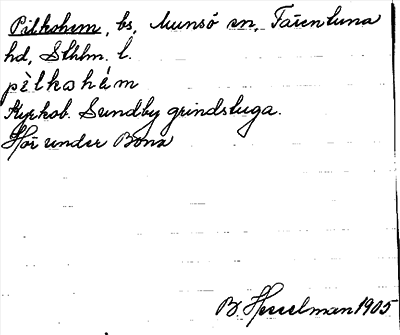 Pilkohem, bs, Munsö sn, Färentuna
hd, Sthlm. l.
pìlkohám
Kyrkob. Sundby grindstuga.
Hör under Bona
B. Hesselman 1905